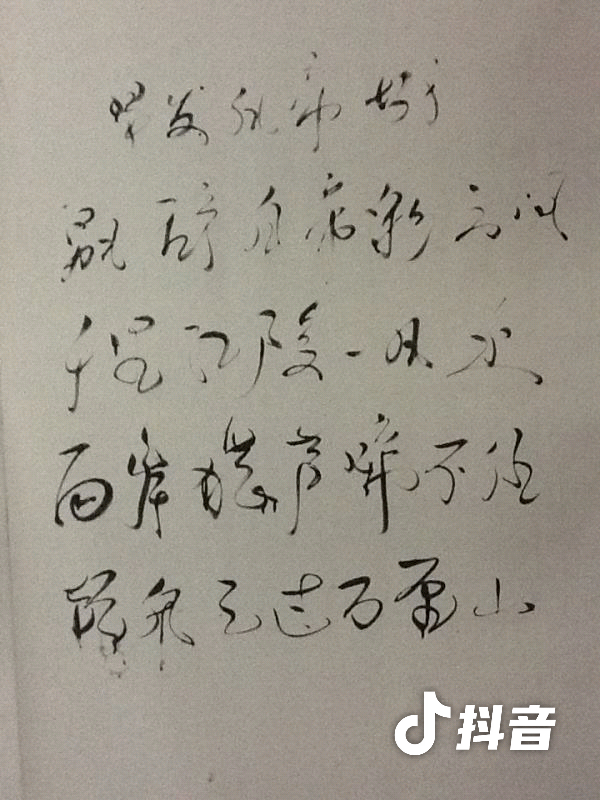 早发白帝城
朝辞白帝彩云间
千里江陵一日还
两岸猿声啼不住
轻舟已过万重山
抖音